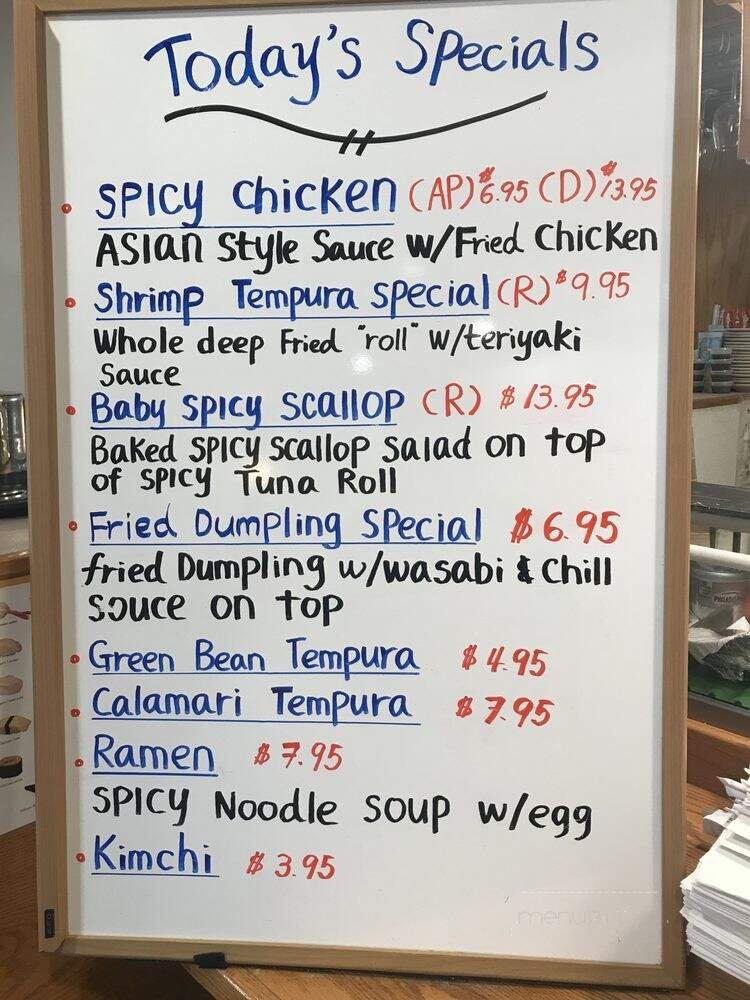 Today's Specials
SPICY Chicken (AP) $6.95 (D) $13.95
ASIAN Style Sauce w/Fried Chicken
Shrimp Tempura special (R) $9.95
Whole deep Fried "roll" w/teriyaki
Sauce
Baby SPICY Scallop (R) $13.95
Baked SPICY Scallop Salad on top
of SPICY Tuna Roll
Fried Dumpling SPecial $6.95
fried Dumpling w/wasabi & Chill
Souce on top
Green Bean Tempura $4.95
Calamari Tempura $7.95
Ramen $7.95
SPICY Noodle Soup w/egg
Kimchi $3.95